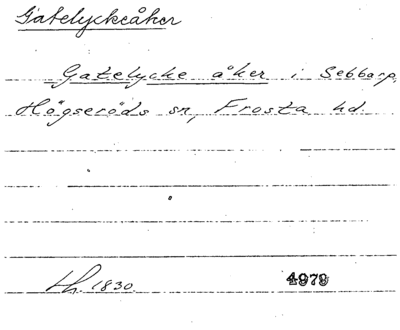 Gatelyckeåker
Gatelycke åker i Sebbarp,
Högseröds sn, Frosta hd.
Lh. 1830. 4979